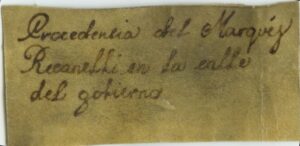 Procedencia del Marqués
Recanelli en la calle
del gobierno